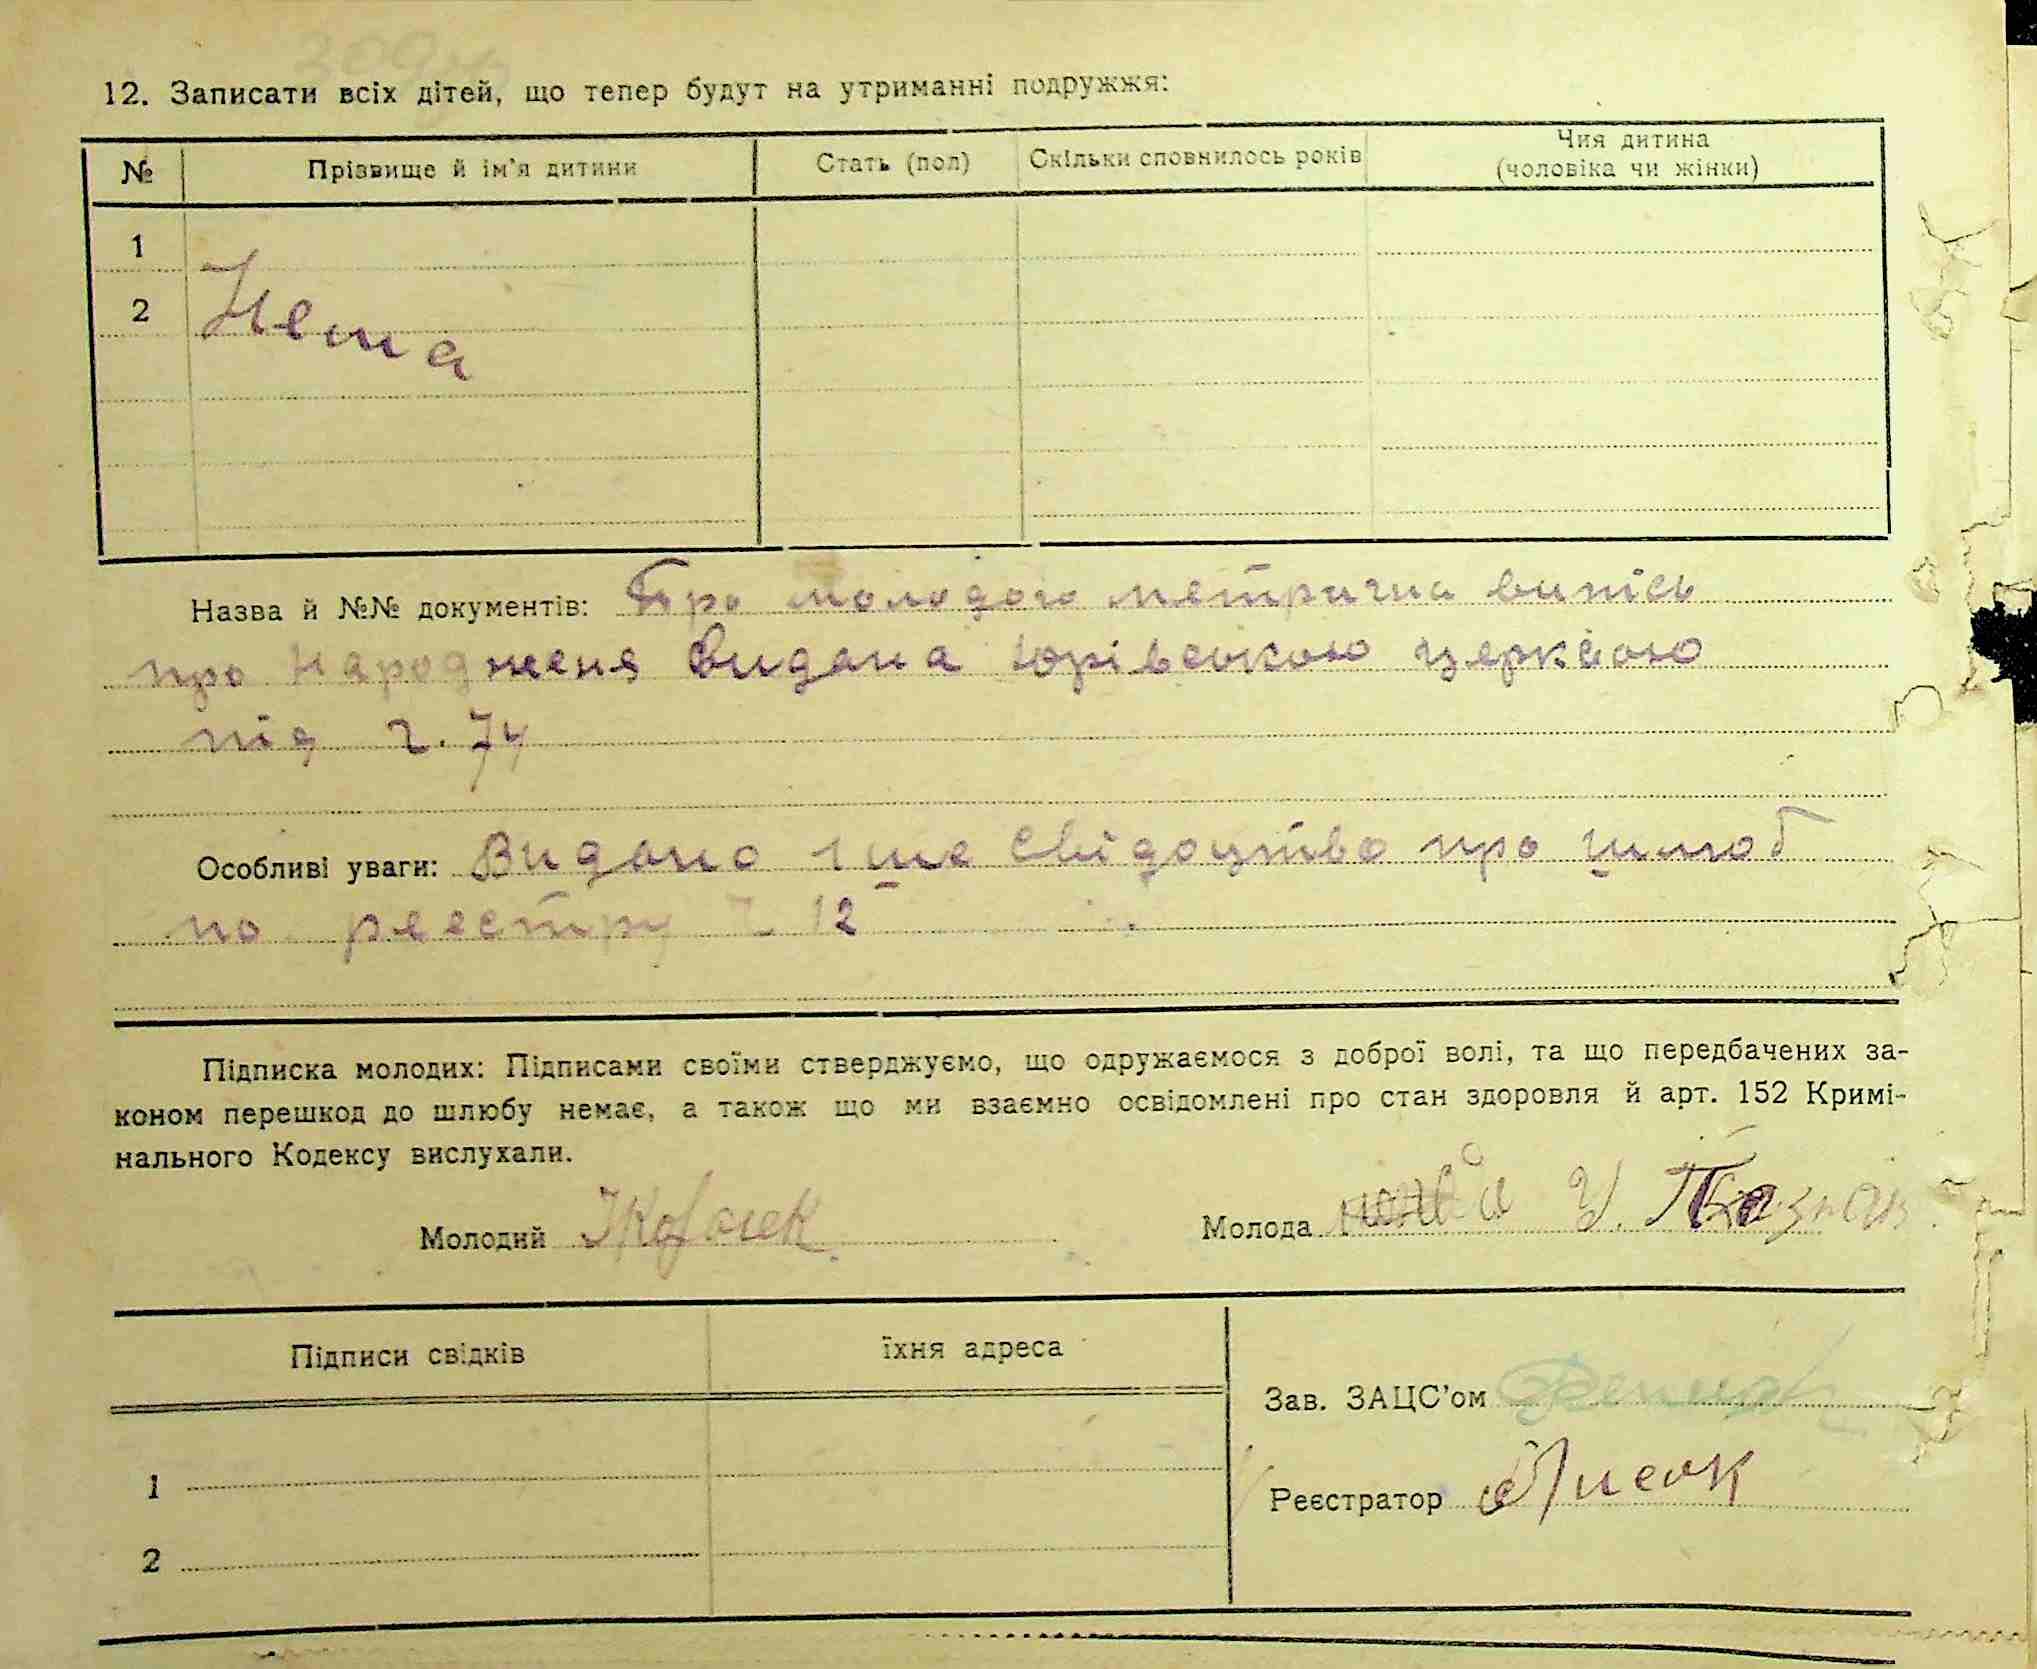 12. Записати всіх дітей, що тепер будут на утриманні подружжя:
№ Прізвище й ім'я дитини Стать (пол) Скільки сповнилось років Чия дитина
(чоловіка чи жінки)
1
2 Нема
Назва й №№ документів: Про молодого метрична випісь
про народженя видана Юрівською церквою
під ч. 74
Особливі уваги: Видано 1 ше свідоцтво про шлюб
по реестру ч 12
Підписка молодих: Підписами своїми стверджуємо, що одружаємося з доброї волі, та що передбачених за-
коном перешкод до шлюбу немає, а також що ми взаємно освідомлені про стан здоровля й арт. 152 Кримі-
нального Кодексу вислухали.
Молодий Молода
Підписи свідків їхня адреса
Зав. ЗАЦС'ом
1
Реєстратор
2